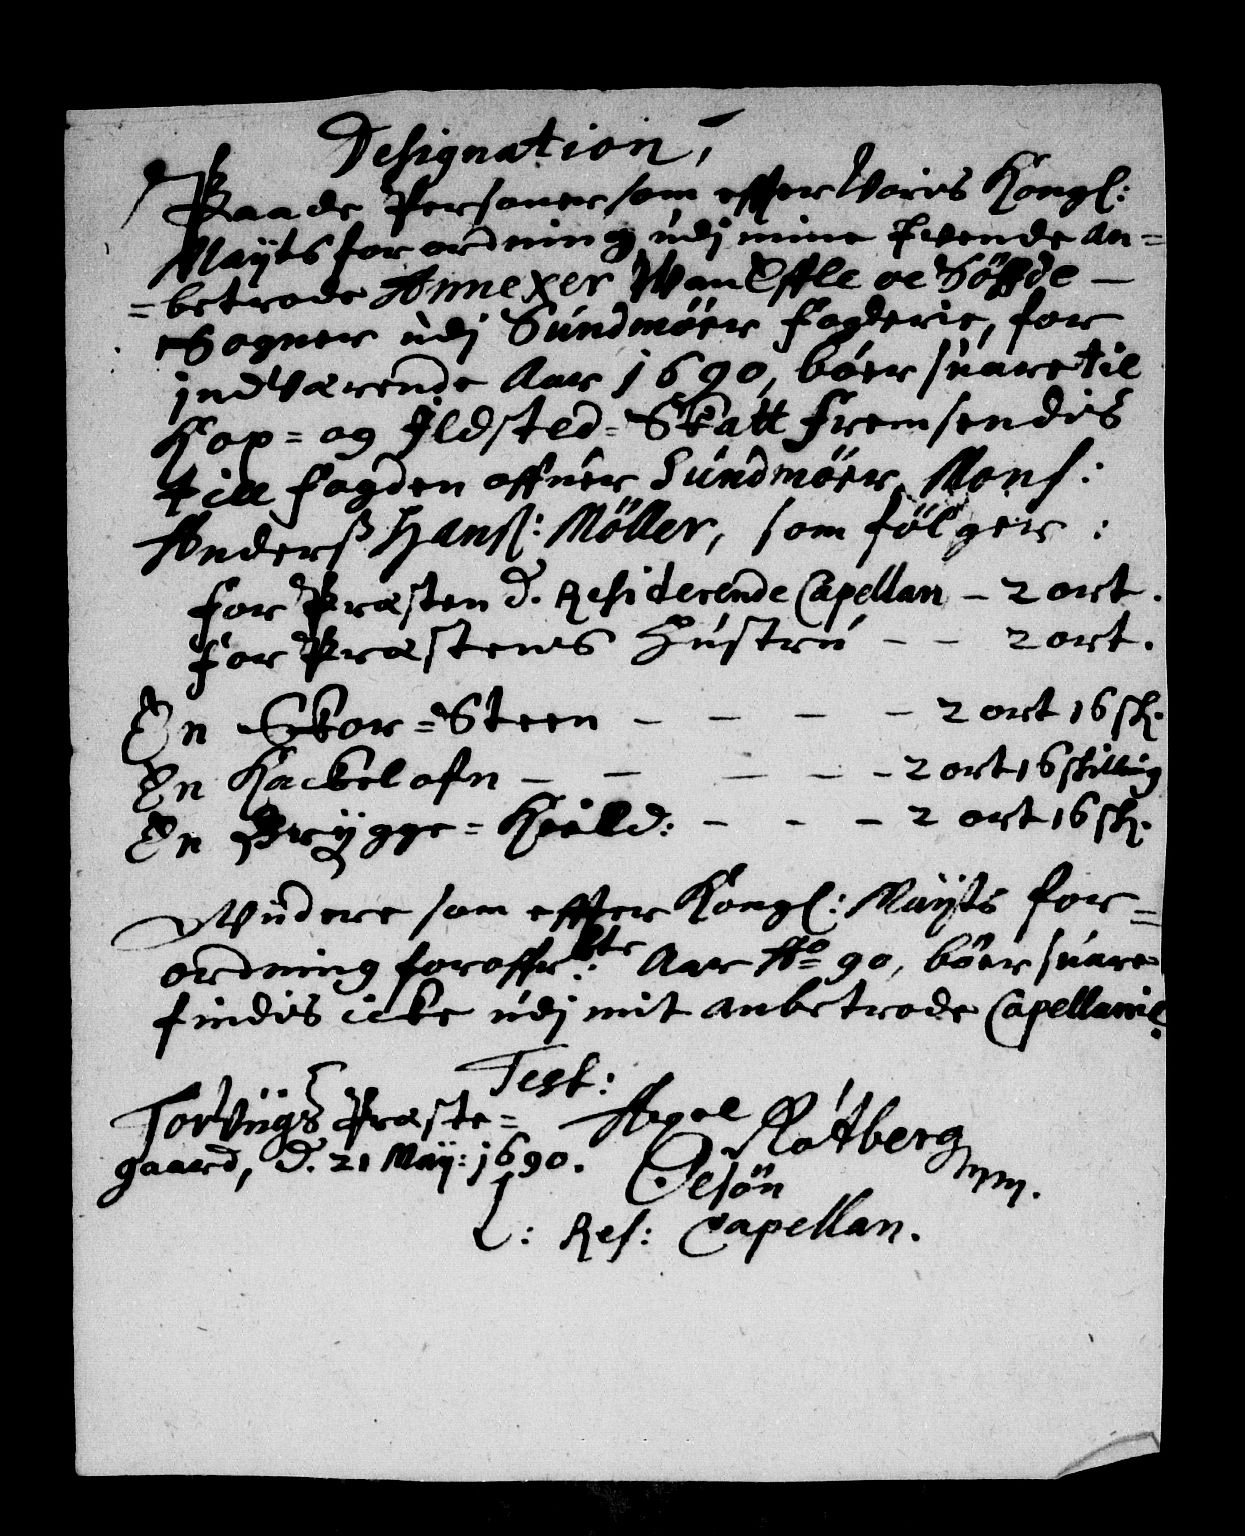 Designation,
Paa de Personer som effter Woris Kongl:
Mayts forordning udj mine tvende an=
=betrode Annexer Wan Elffle oc Söffde —
Sogner udj Sundmöers fogderie, for
indWærende Aar 1690, böer suare til
Kop= og Ildsted=Skatt fremsendis
till fogden offuer Sundmöer, Mons:
Anderß Hanß: Möller, som fölger:
for Præsten d. Residerende Capellan – 2 ort.
for Præstens Hustru – – 2 ort.
En Skor=Steen – – – – 2 ort 16 sk.
En Kackelofn – – – – – 2 ort 16 skilling
En Brygge=Kield: – – – 2 ort 16 sk.
Widere som effter Kongl: Mayts for=
ordning foroffr:bte Aar Ao= 90, böer suare
findis icke udj mit anbetrode Capellanie.
Test:
TorWiigs Præste=
gaard, d. 21 Maij: 1690.
Axel Rotberg
Oelsön mm.
L: Res: Capellan.